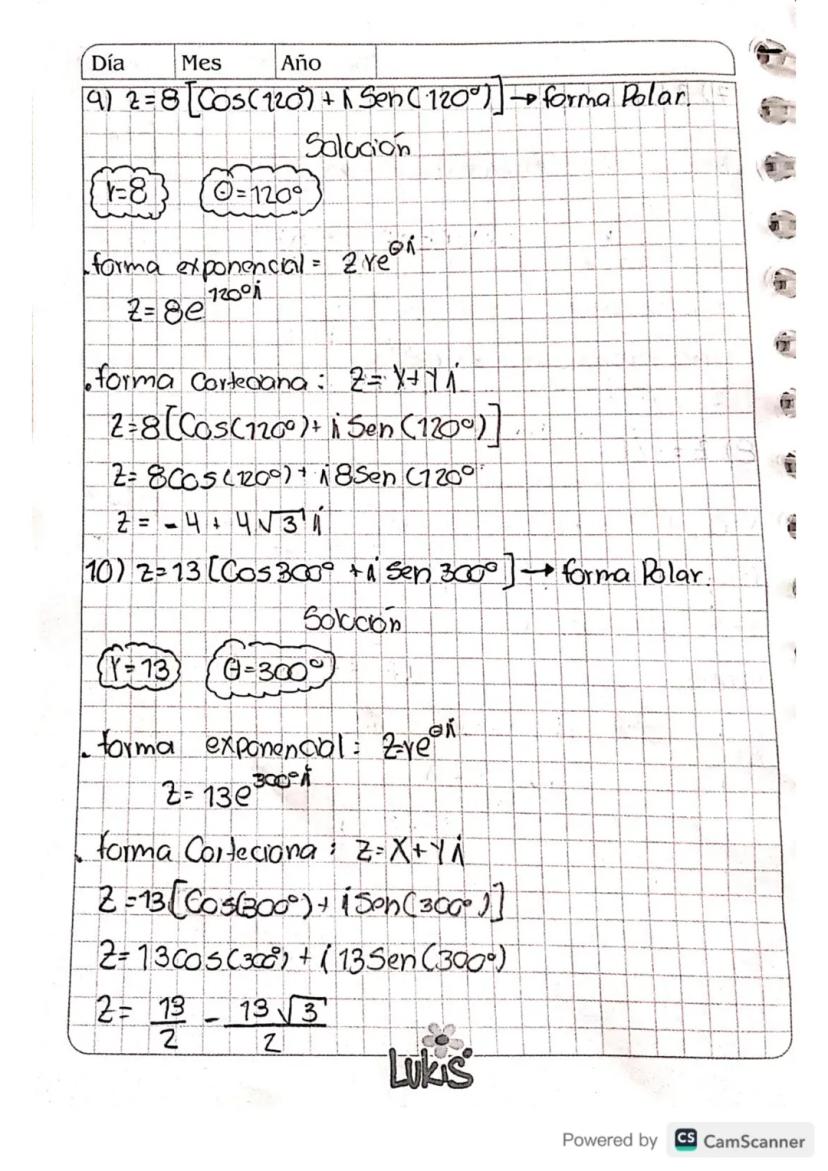 Día Mes Año
9) z=8[Cos(120°)+i Sen(120°)]→forma Polar.
Solución
r=8 θ=120°
.forma exponencial = Z re^θi
z=8e^120°i
.forma Cartesiana: z=x+yi
z=8[Cos(120°)+iSen(120°)]
z=8Cos(120°)+i8Sen(120°
z=-4+4√3 i
10) z=13[Cos300°+i Sen 300°]→forma Polar.
Solución
r=13 θ=300°
.forma exponencial: z=re^θi
z=13e^300°i
.forma Carteciana: z=x+yi
z=13[Cos(300°)+iSen(300°)]
z=13cos(300°)+i13Sen(300°)
z=13/2-13√3/2
LUKIS
Powered by CS CamScanner